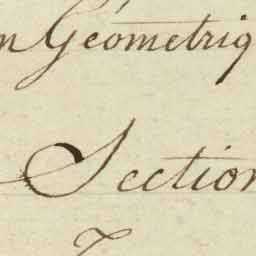 n Géometriq
Section